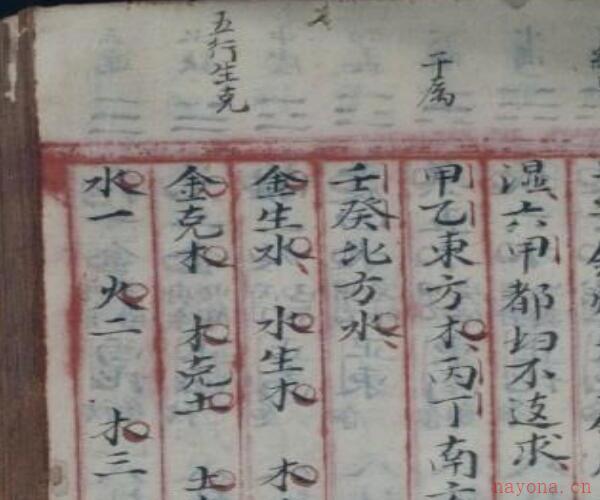 干属
五行生克
湿六甲都均不逺求
甲乙東方木丙丁南方
壬癸北方水
金生水 水生木 木
金克木 木克土 土
水一 火二 木三
nayona.cn